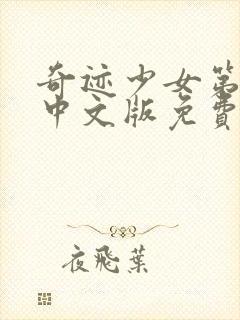 奇迹少女第
中文版免費
夜飛葉